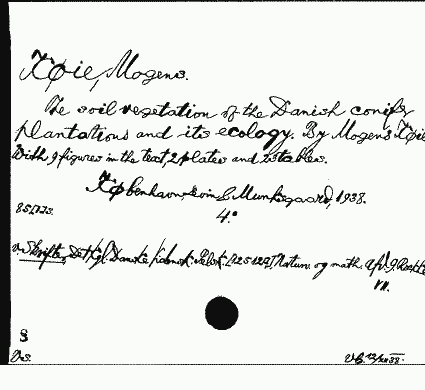 Køie, Mogens.
The soil vegetation of the Danish conifer
plantations and its ecology. By Mogens Køie
With 9 figures in the text, 2 plates and tables.
København, Levin & Munksgaard, 1938.
4°
v. Skrifter, Det Kgl. Danske Vidensk. Selsk. Naturv. og math. Afd. 9. Række
VII.
8